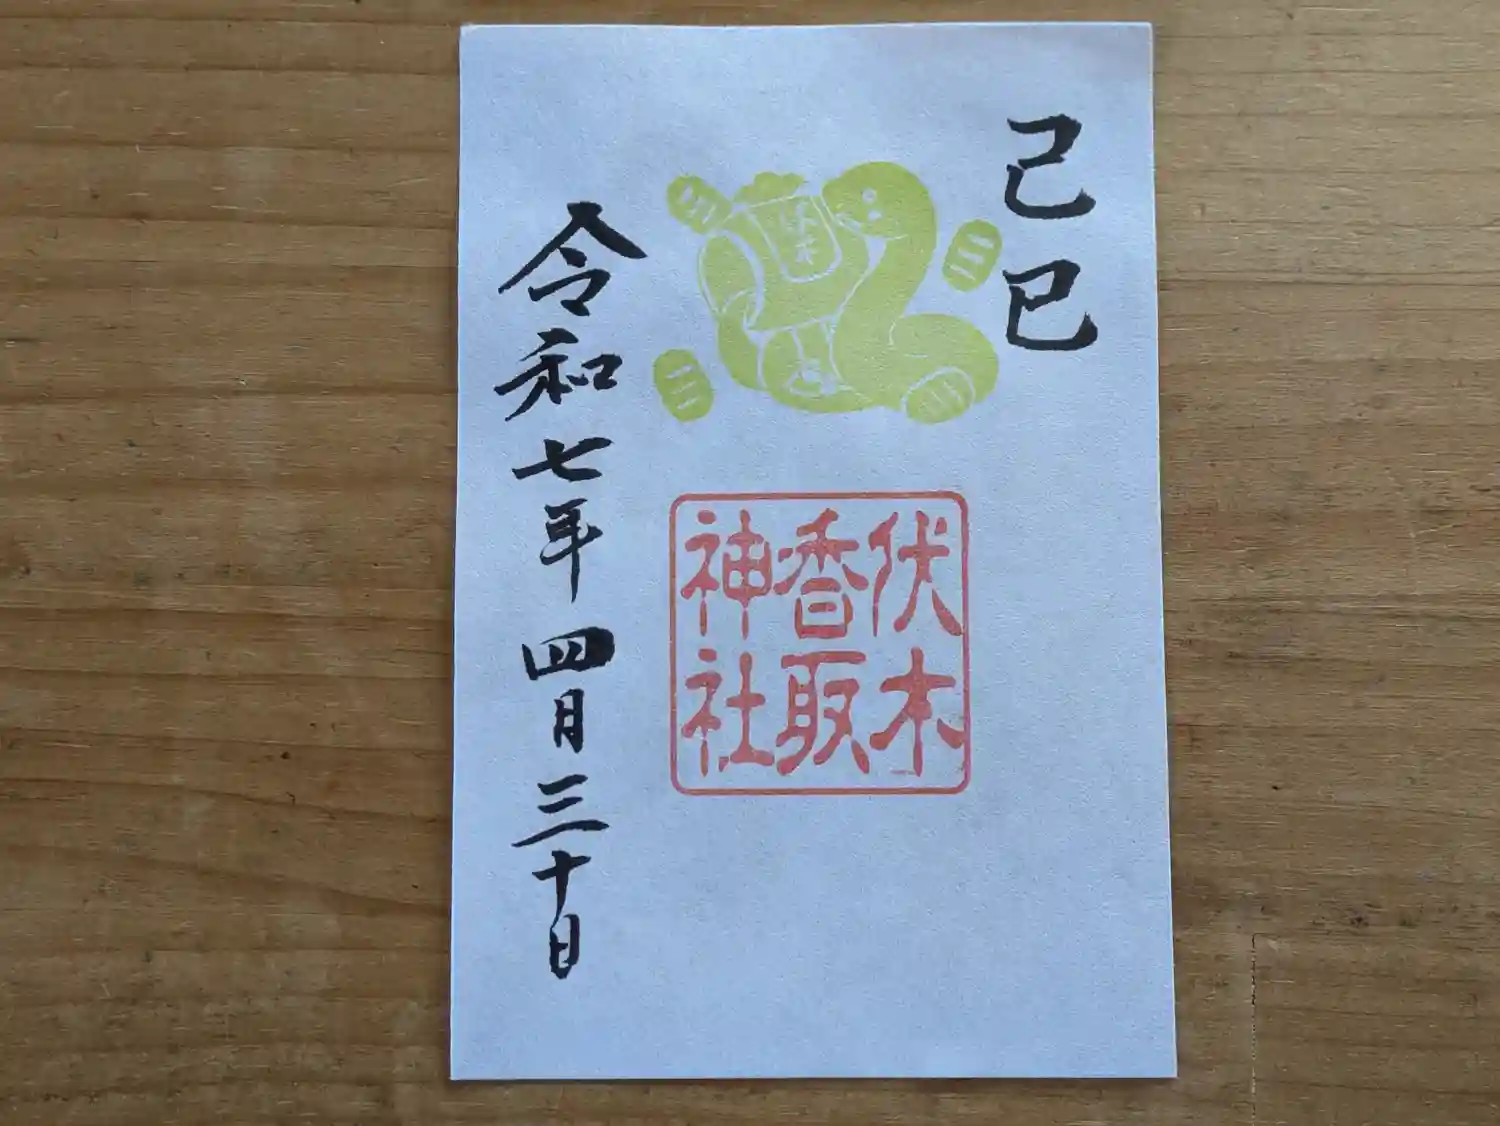 己巳
伏木
香取
神社
令和七年四月三十日